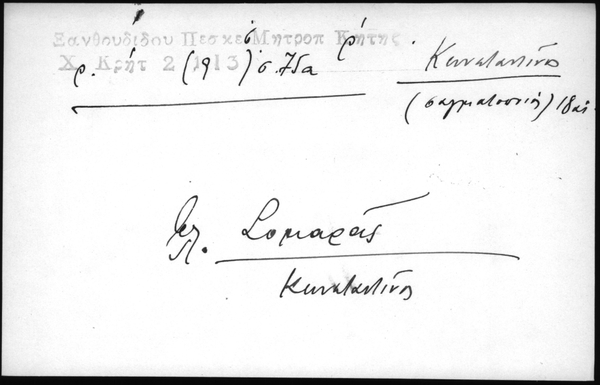 Ξανθουδίδου Πεσκε Μητροπ Κρήτης
Χ. Κρήτ 2 (1913) σ. 75α
Κωνσταντίνος
(σαγματοποιός) 18 αἰ.
βλ. Σομαρᾶς
Κωνσταντίνος